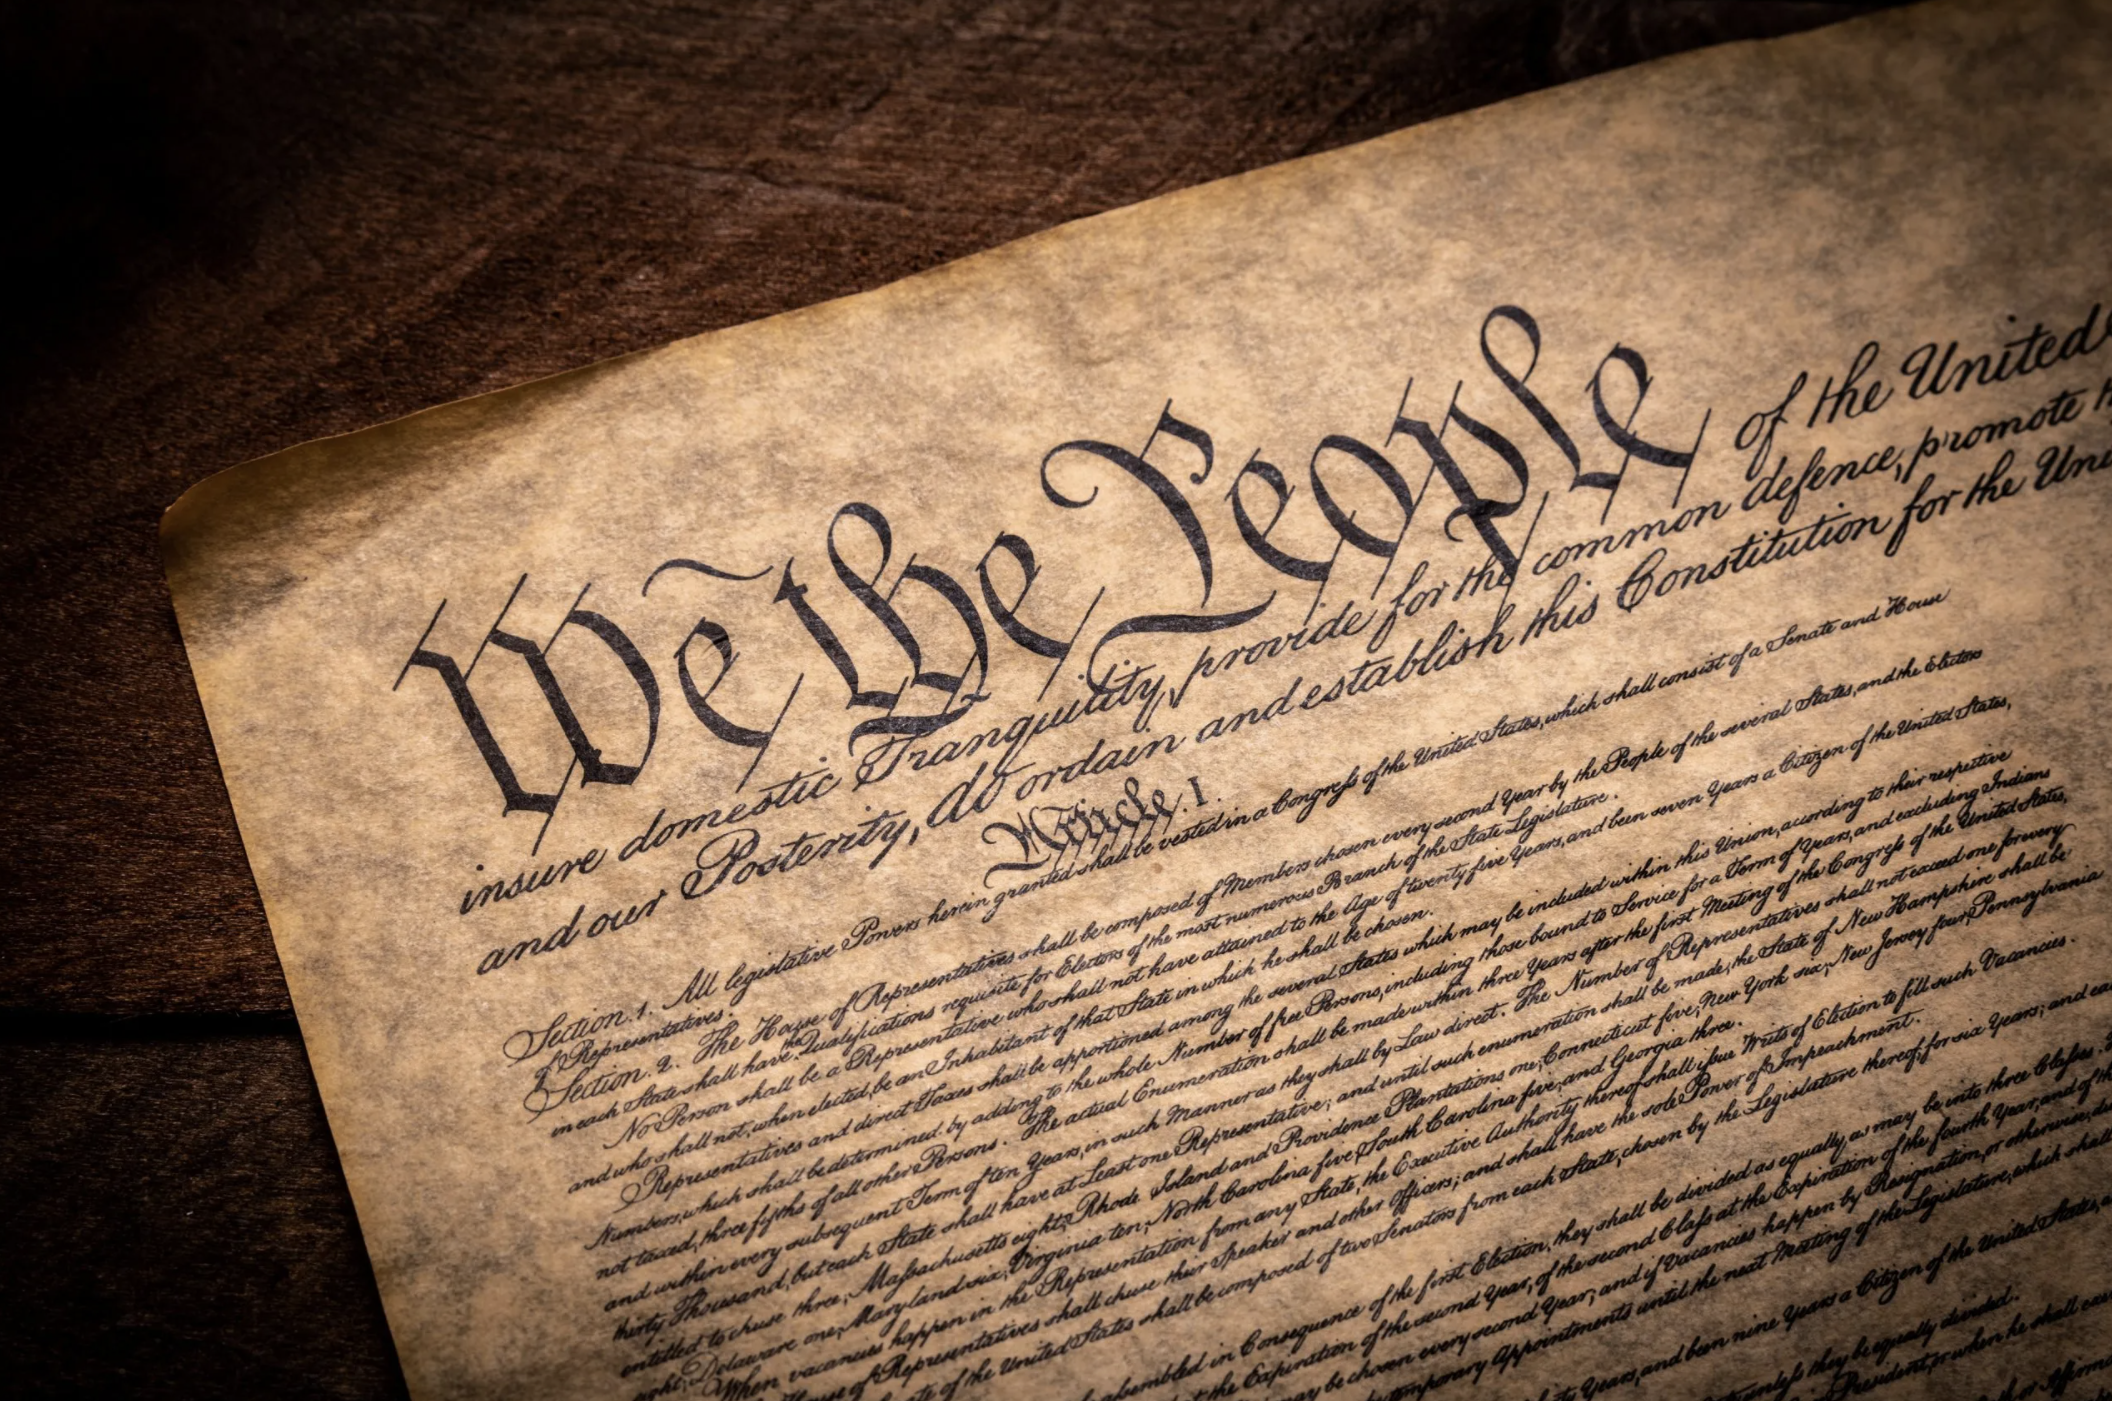 We the People of the United
insure domestic Tranquility, provide for the common defence, promote
and our Posterity, do ordain and establish this Constitution for the Uni
Article. I.
Section. 1. All legislative Powers herein granted shall be vested in a Congress of the United States, which shall consist of a Senate and House
of Representatives.
Section. 2. The House of Representatives shall be composed of Members chosen every second Year by the People of the several States, and the Electors
in each State shall have the Qualifications requisite for Electors of the most numerous Branch of the State Legislature.
No Person shall be a Representative who shall not have attained to the Age of twenty five Years, and been seven Years a Citizen of the United States,
and who shall not, when elected, be an Inhabitant of that State in which he shall be chosen.
Representatives and direct Taxes shall be apportioned among the several States which may be included within this Union, according to their respective
Numbers, which shall be determined by adding to the whole Number of free Persons, including those bound to Service for a Term of Years, and excluding Indians
not taxed, three fifths of all other Persons. The actual Enumeration shall be made within three Years after the first Meeting of the Congress of the United States,
and within every subsequent Term of ten Years, in such Manner as they shall by Law direct. The Number of Representatives shall not exceed one for every
thirty Thousand, but each State shall have at Least one Representative; and until such enumeration shall be made, the State of New Hampshire shall be
entitled to chuse three, Massachusetts eight, Rhode Island and Providence Plantations one, Connecticut five, New York six, New Jersey four, Pennsylvania
eight, Delaware one, Maryland six, Virginia ten, North Carolina five, South Carolina five, and Georgia three.
When vacancies happen in the Representation from any State, the Executive Authority thereof shall issue Writs of Election to fill such Vacancies.
House of Representatives shall chuse their Speaker and other Officers; and shall have the sole Power of Impeachment.
of the United States shall be composed of two Senators from each State, chosen by the Legislature thereof, for six Years; and
assembled in Consequence of the first Election, they shall be divided as equally as may be into three Classes.
at the Expiration of the second Year, of the second Class at the Expiration of the fourth Year, and of the
may be chosen every second Year; and if Vacancies happen by Resignation, or otherwise,
temporary Appointments until the next Meeting of the Legislature, which shall
Years, and been nine Years a Citizen of the United States,
unless they be equally divided.
President, or when he shall
or Affirma